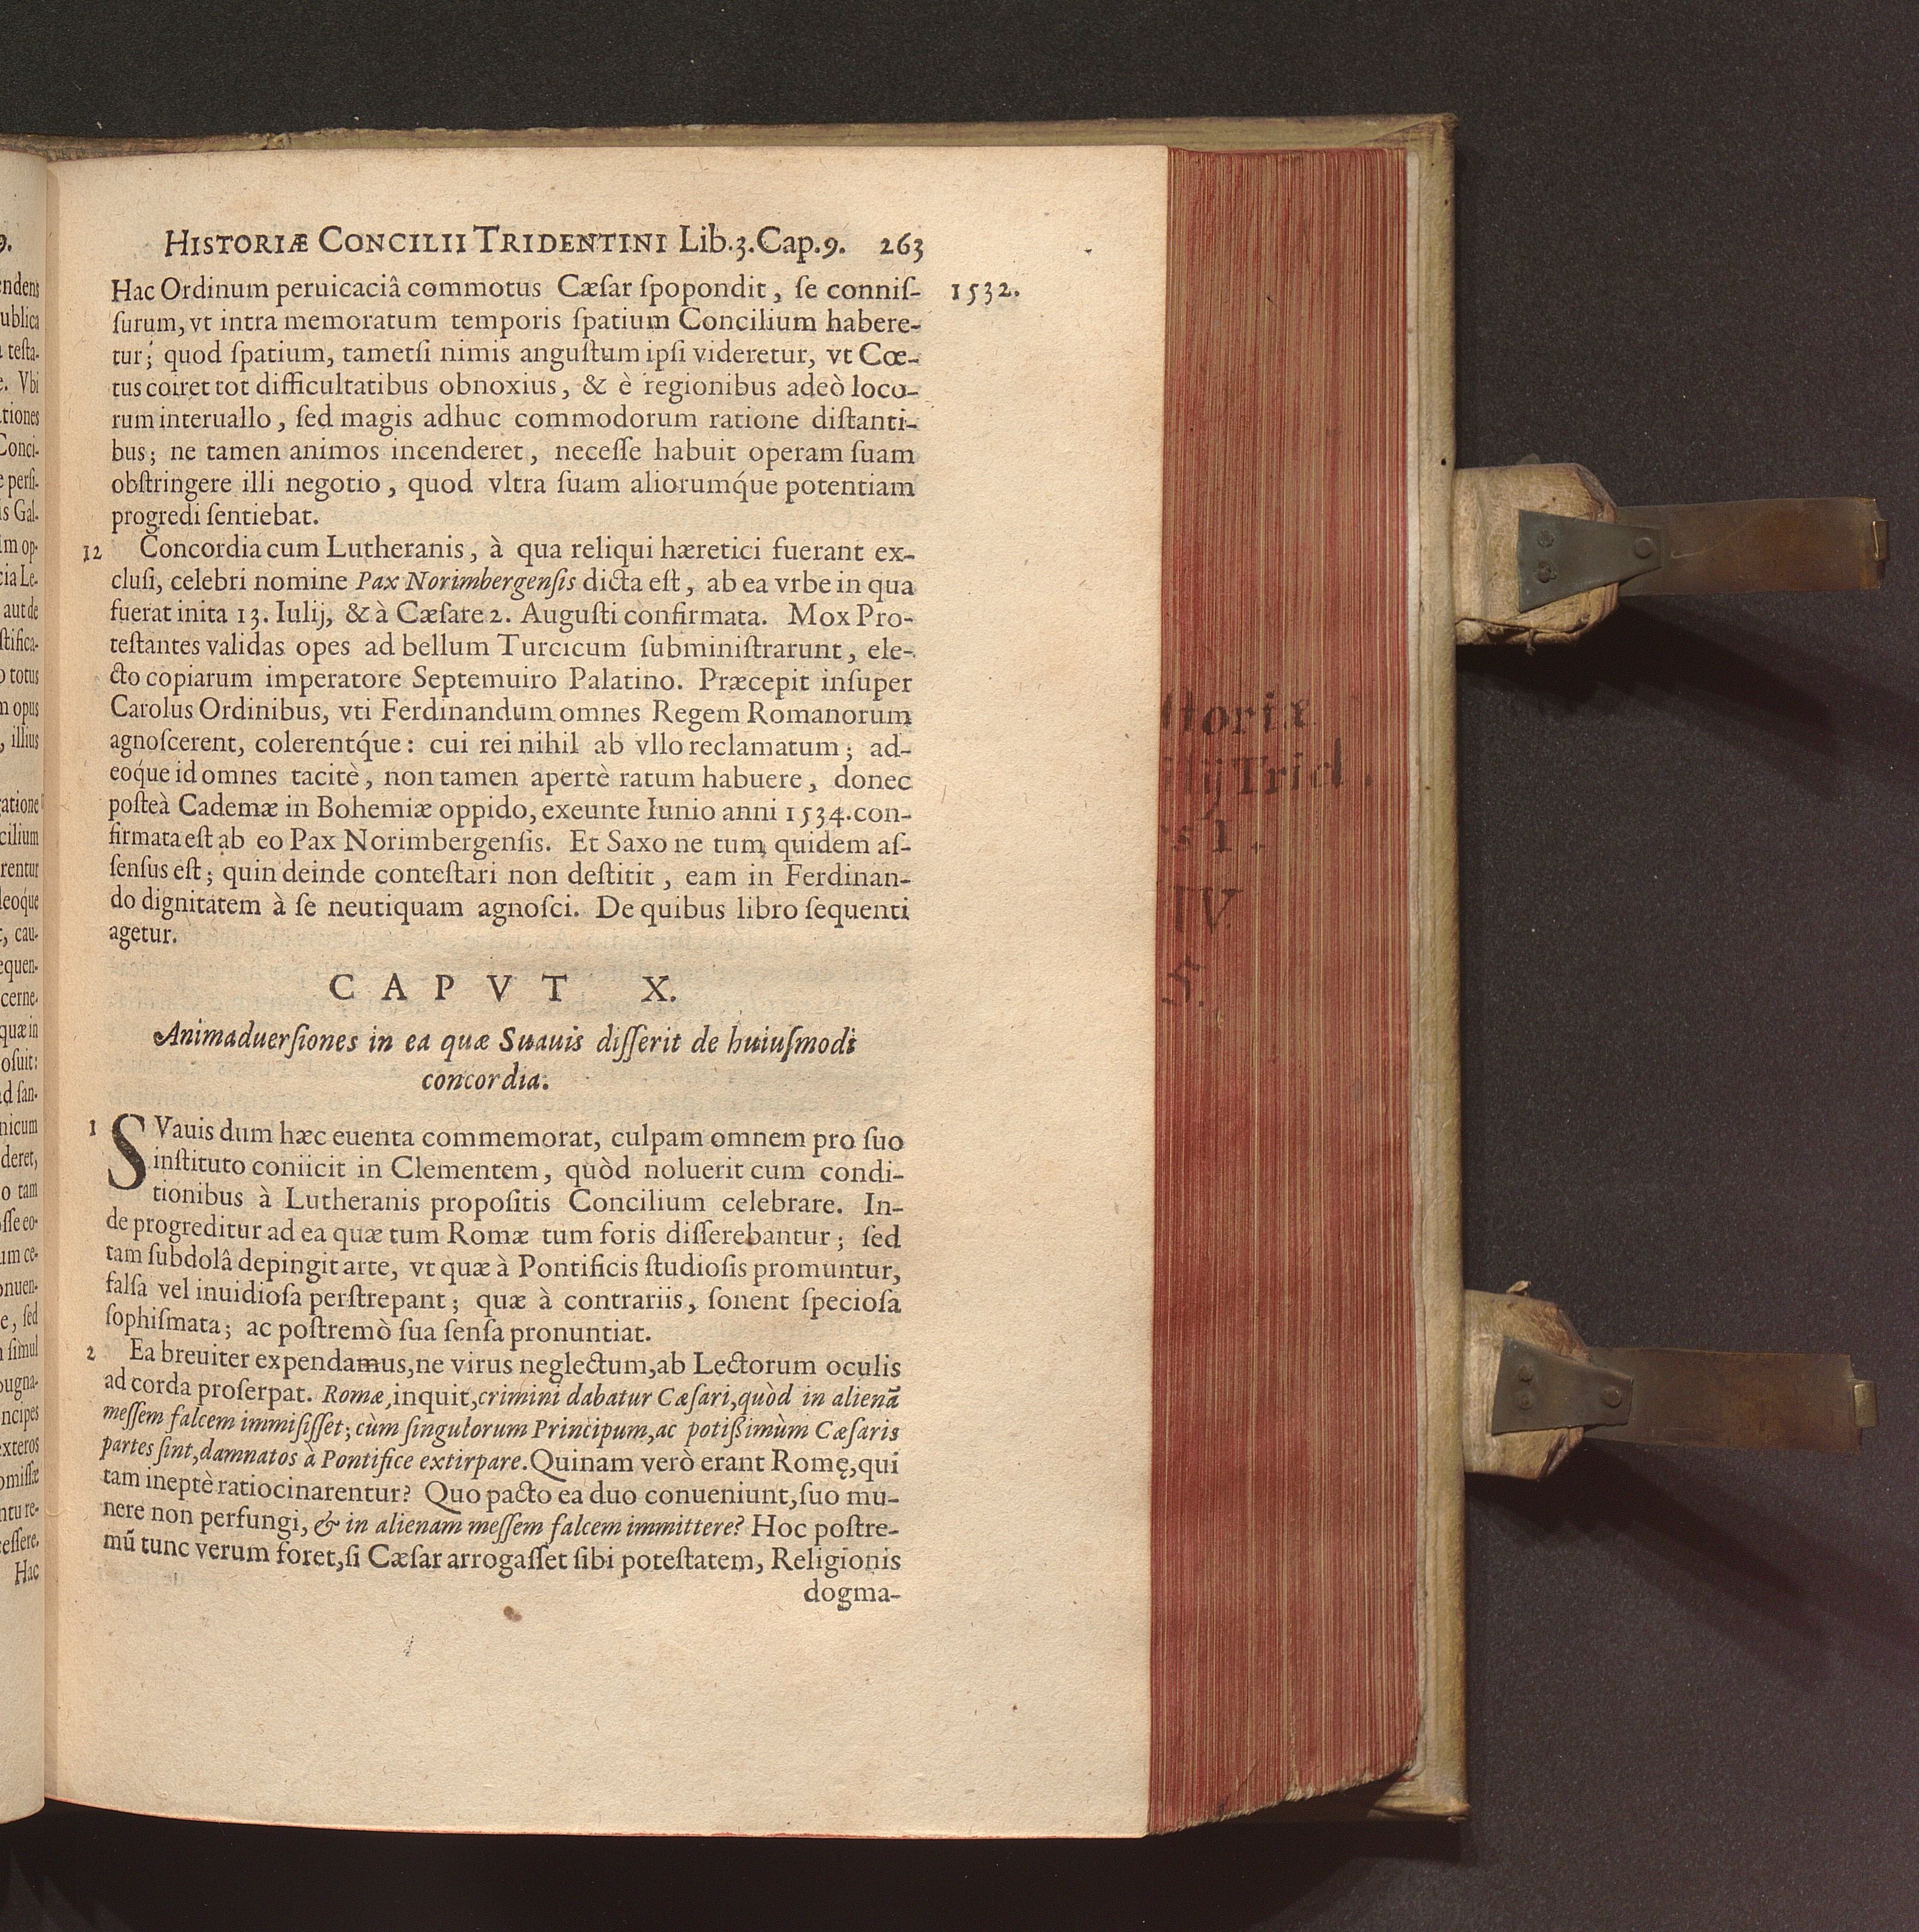 HISTORIÆ CONCILII TRIDENTINI Lib.3.Cap.9. 263
1532.
Hac Ordinum peruicaciâ commotus Cæſar ſpopondit, ſe conniſ-
ſurum, vt intra memoratum temporis ſpatium Concilium habere-
tur; quod ſpatium, tametſi nimis anguſtum ipſi videretur, vt Cœ-
tus coiret tot difficultatibus obnoxius, & è regionibus adeò loco-
rum interuallo, ſed magis adhuc commodorum ratione diſtanti-
bus; ne tamen animos incenderet, neceſſe habuit operam ſuam
obſtringere illi negotio, quod vltra ſuam aliorumq́ue potentiam
progredi ſentiebat.
12 Concordia cum Lutheranis, à qua reliqui hæretici fuerant ex-
cluſi, celebri nomine Pax Norimbergenſis dicta eſt, ab ea vrbe in qua
fuerat inita 13. Iulij, & à Cæſare 2. Auguſti confirmata. Mox Pro-
teſtantes validas opes ad bellum Turcicum ſubminiſtrarunt, ele-
cto copiarum imperatore Septemuiro Palatino. Præcepit inſuper
Carolus Ordinibus, vti Ferdinandum omnes Regem Romanorum
agnoſcerent, colerentq́ue: cui rei nihil ab vllo reclamatum; ad-
eoq́ue id omnes tacitè, non tamen apertè ratum habuere, donec
poſteà Cademæ in Bohemiæ oppido, exeunte Iunio anni 1534. con-
firmata eſt ab eo Pax Norimbergenſis. Et Saxo ne tum quidem aſ-
ſenſus eſt; quin deinde conteſtari non deſtitit, eam in Ferdinan-
do dignitatem à ſe neutiquam agnoſci. De quibus libro ſequenti
agetur.
CAPVT X.
Animaduerſiones in ea quæ Suauis diſſerit de huiuſmodi
concordia.
1 SVauis dum hæc euenta commemorat, culpam omnem pro ſuo
inſtituto coniicit in Clementem, quòd noluerit cum condi-
tionibus à Lutheranis propoſitis Concilium celebrare. In-
de progreditur ad ea quæ tum Romæ tum foris diſſerebantur; ſed
tam ſubdolâ depingit arte, vt quæ à Pontificis ſtudioſis promuntur,
falſa vel inuidioſa perſtrepant; quæ à contrariis, ſonent ſpecioſa
ſophiſmata; ac poſtremò ſua ſenſa pronuntiat.
2 Ea breuiter expendamus, ne virus neglectum, ab Lectorum oculis
ad corda proſerpat. Romæ, inquit, crimini dabatur Cæſari, quòd in alienā
meſſem falcem immiſiſſet; cùm ſingulorum Principum, ac potißimùm Cæſaris
partes ſint, damnatos à Pontifice extirpare. Quinam verò erant Romę, qui
tam ineptè ratiocinarentur? Quo pacto ea duo conueniunt, ſuo mu-
nere non perfungi, & in alienam meſſem falcem immittere? Hoc poſtre-
mū tunc verum foret, ſi Cæſar arrogaſſet ſibi poteſtatem, Religionis
dogma-
ſtoriæ
ilij Trid.
s 1.
IV
S.